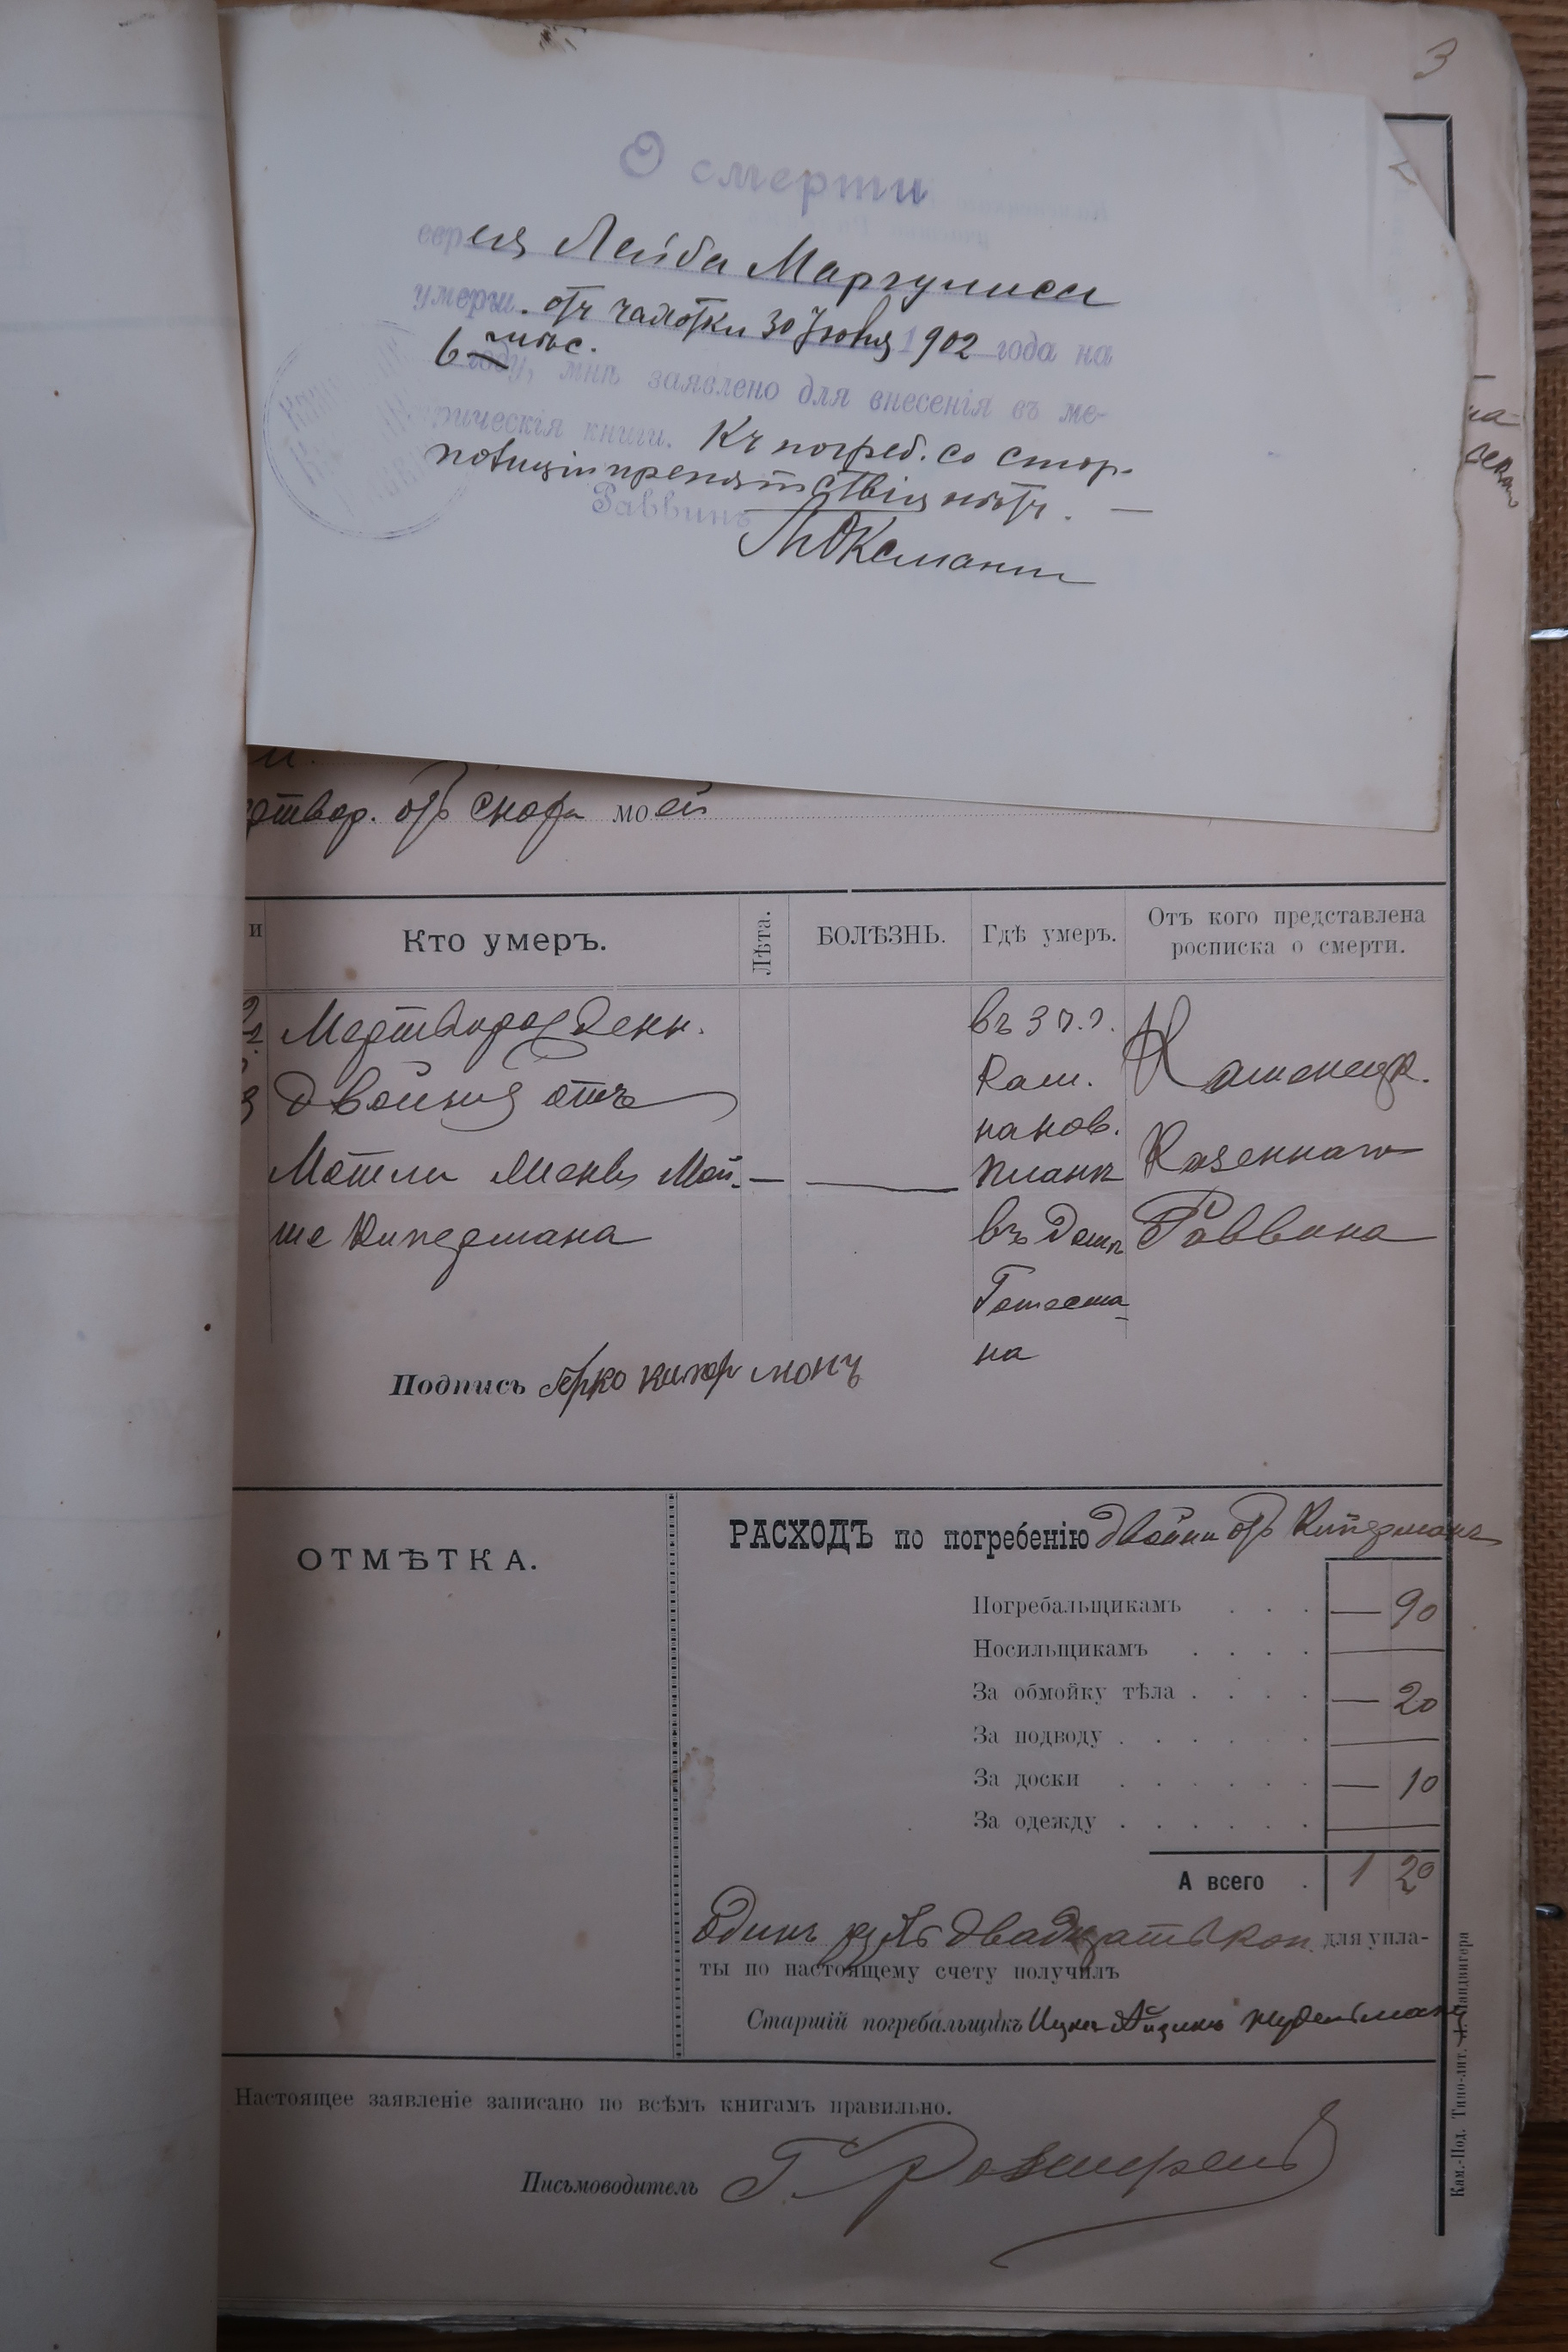 3
О смерти
еврея Лейба Маргулиса
умерш. отъ чахотки 30 Іюня 1902 года на
6 мѣс.
году, мнѣ заявлено для внесенія въ ме-
рическія книги. Къ погреб. со стор.
полиціи препятствія нѣтъ. —
Раввинъ
отвор. отъ снохи моей
и Кто умеръ. Лѣта. БОЛѢЗНЬ. Гдѣ умеръ. Отъ кого представлена
росписка о смерти.
Мертворожденн.
двойня отъ
Мотли Менъ Мой-
ше Кипермана
—
въ 3 ч. г.
Кам.
нанов.
планъ
въ домѣ
на
Каменецк.
Казеннаго
Раввина
Подпись
ОТМѢТКА.
РАСХОДЪ по погребенію двойни отъ Кипермана
Погребальщикамъ . . . — 90
Носильщикамъ . . . . —
За обмойку тѣла . . . . — 20
За подводу . . . . . . —
За доски . . . . . . — 10
За одежду . . . . . . —
А всего . 1 20
Одинъ рубль двадцать коп. для упла-
ты по настоящему счету получилъ
Старшій погребальщикъ Ицко Айзикъ
Настоящее заявленіе записано по всѣмъ книгамъ правильно.
Письмоводитель Г.
Кам.-Под. Типо-лит.